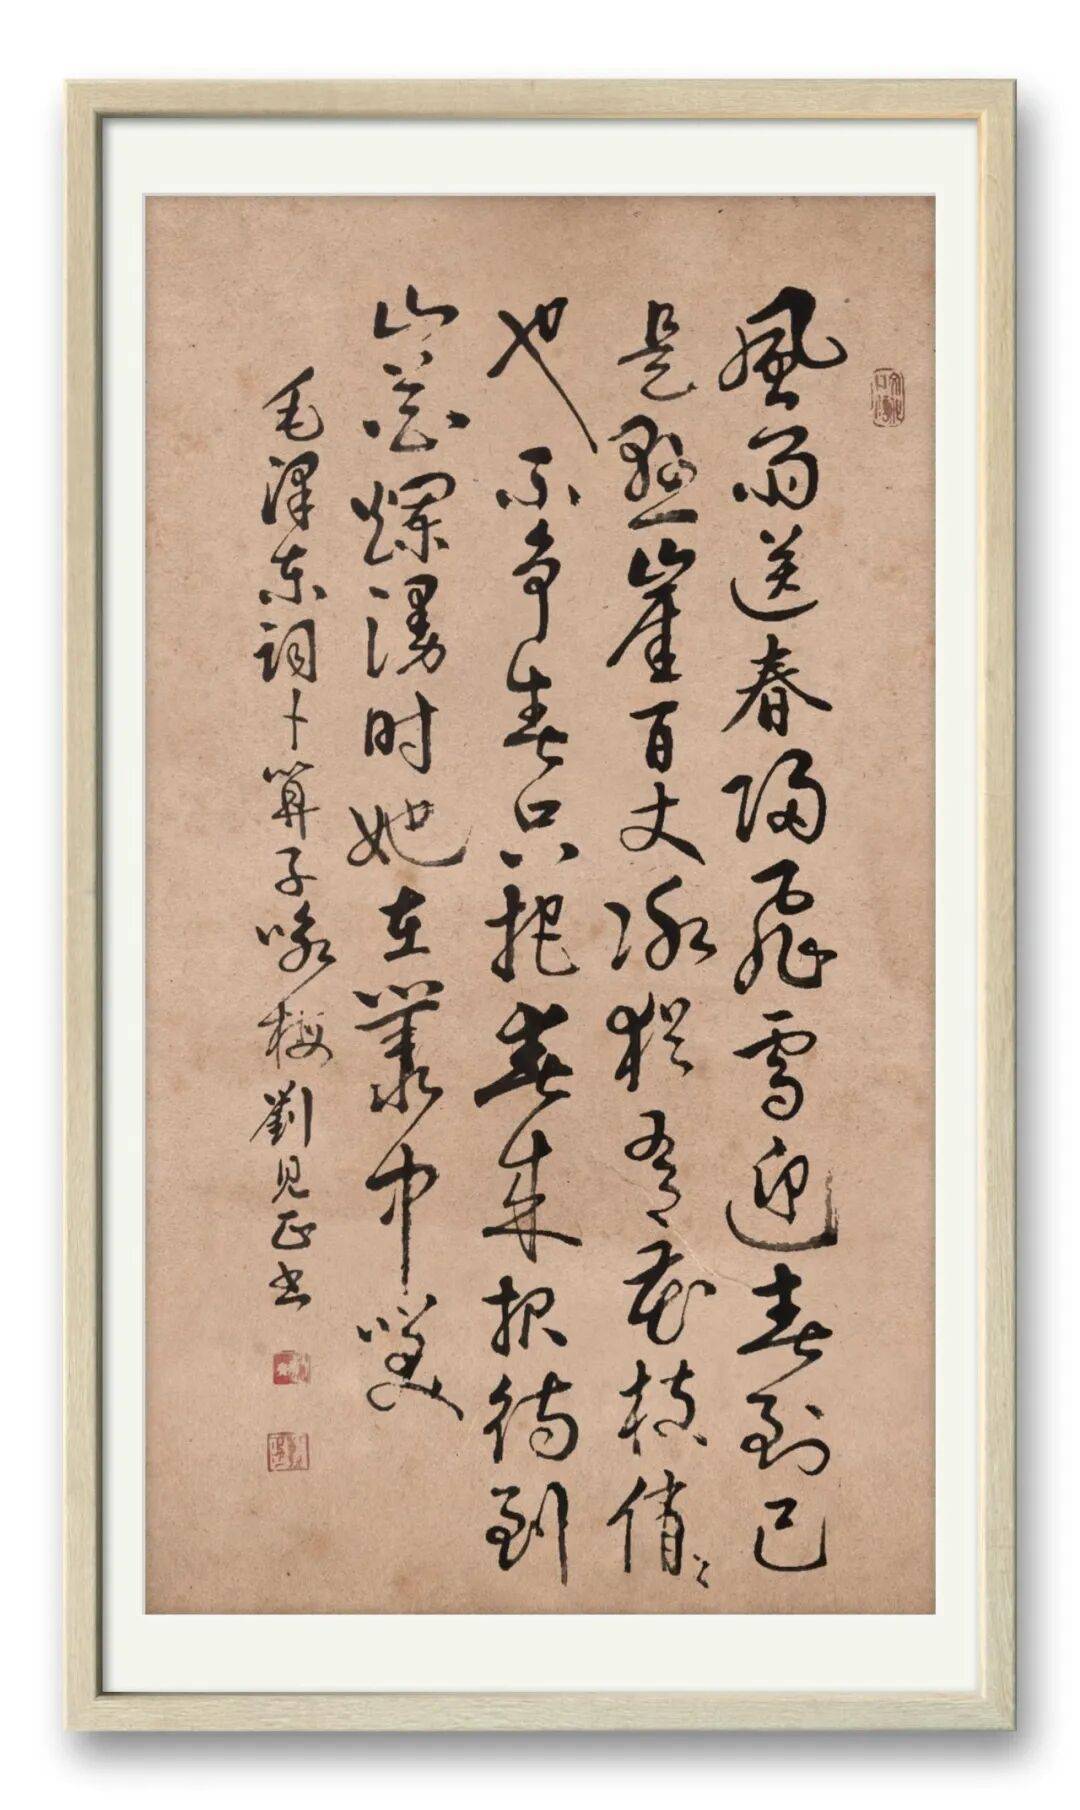 風雨送春歸飛雪迎春到已
是懸崖百丈冰猶有花枝俏〻
也不争春只把春来报待到
山花爛漫时她在叢中咲
毛泽东词卜算子咏梅劉見正书